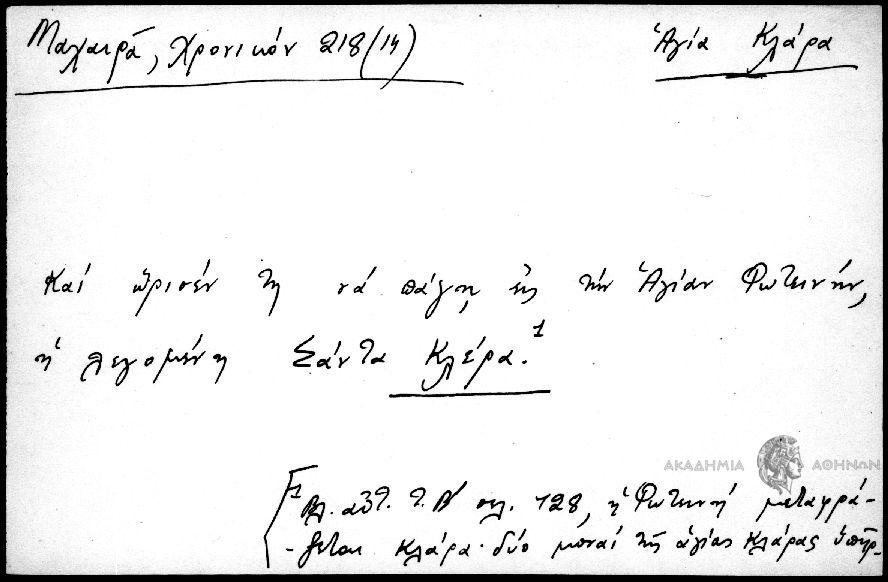 Μαχαιρᾶ, Χρονικόν 218 (14)
Ἁγία Κλάρα
Καί ὥρισέν τη νά πάγη εἰς τήν Ἁγίαν Φωτεινήν,
ἡ λεγομένη Σάντα Κλέρα.¹
ΑΚΑΔΗΜΙΑ ΑΘΗΝΩΝ
[1 Βλ. αὐτ. τ. Β' σελ. 128, ἡ Φωτεινή μεταφρά-
-ζεται Κλάρα· δύο μοναί τῆς ἁγίας Κλάρας ὑπῆρ-